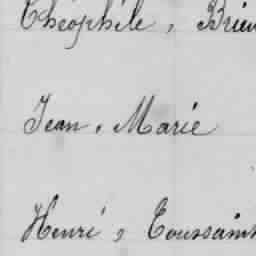 Théophile, Brieu
Jean, Marie
Henri, Toussaint